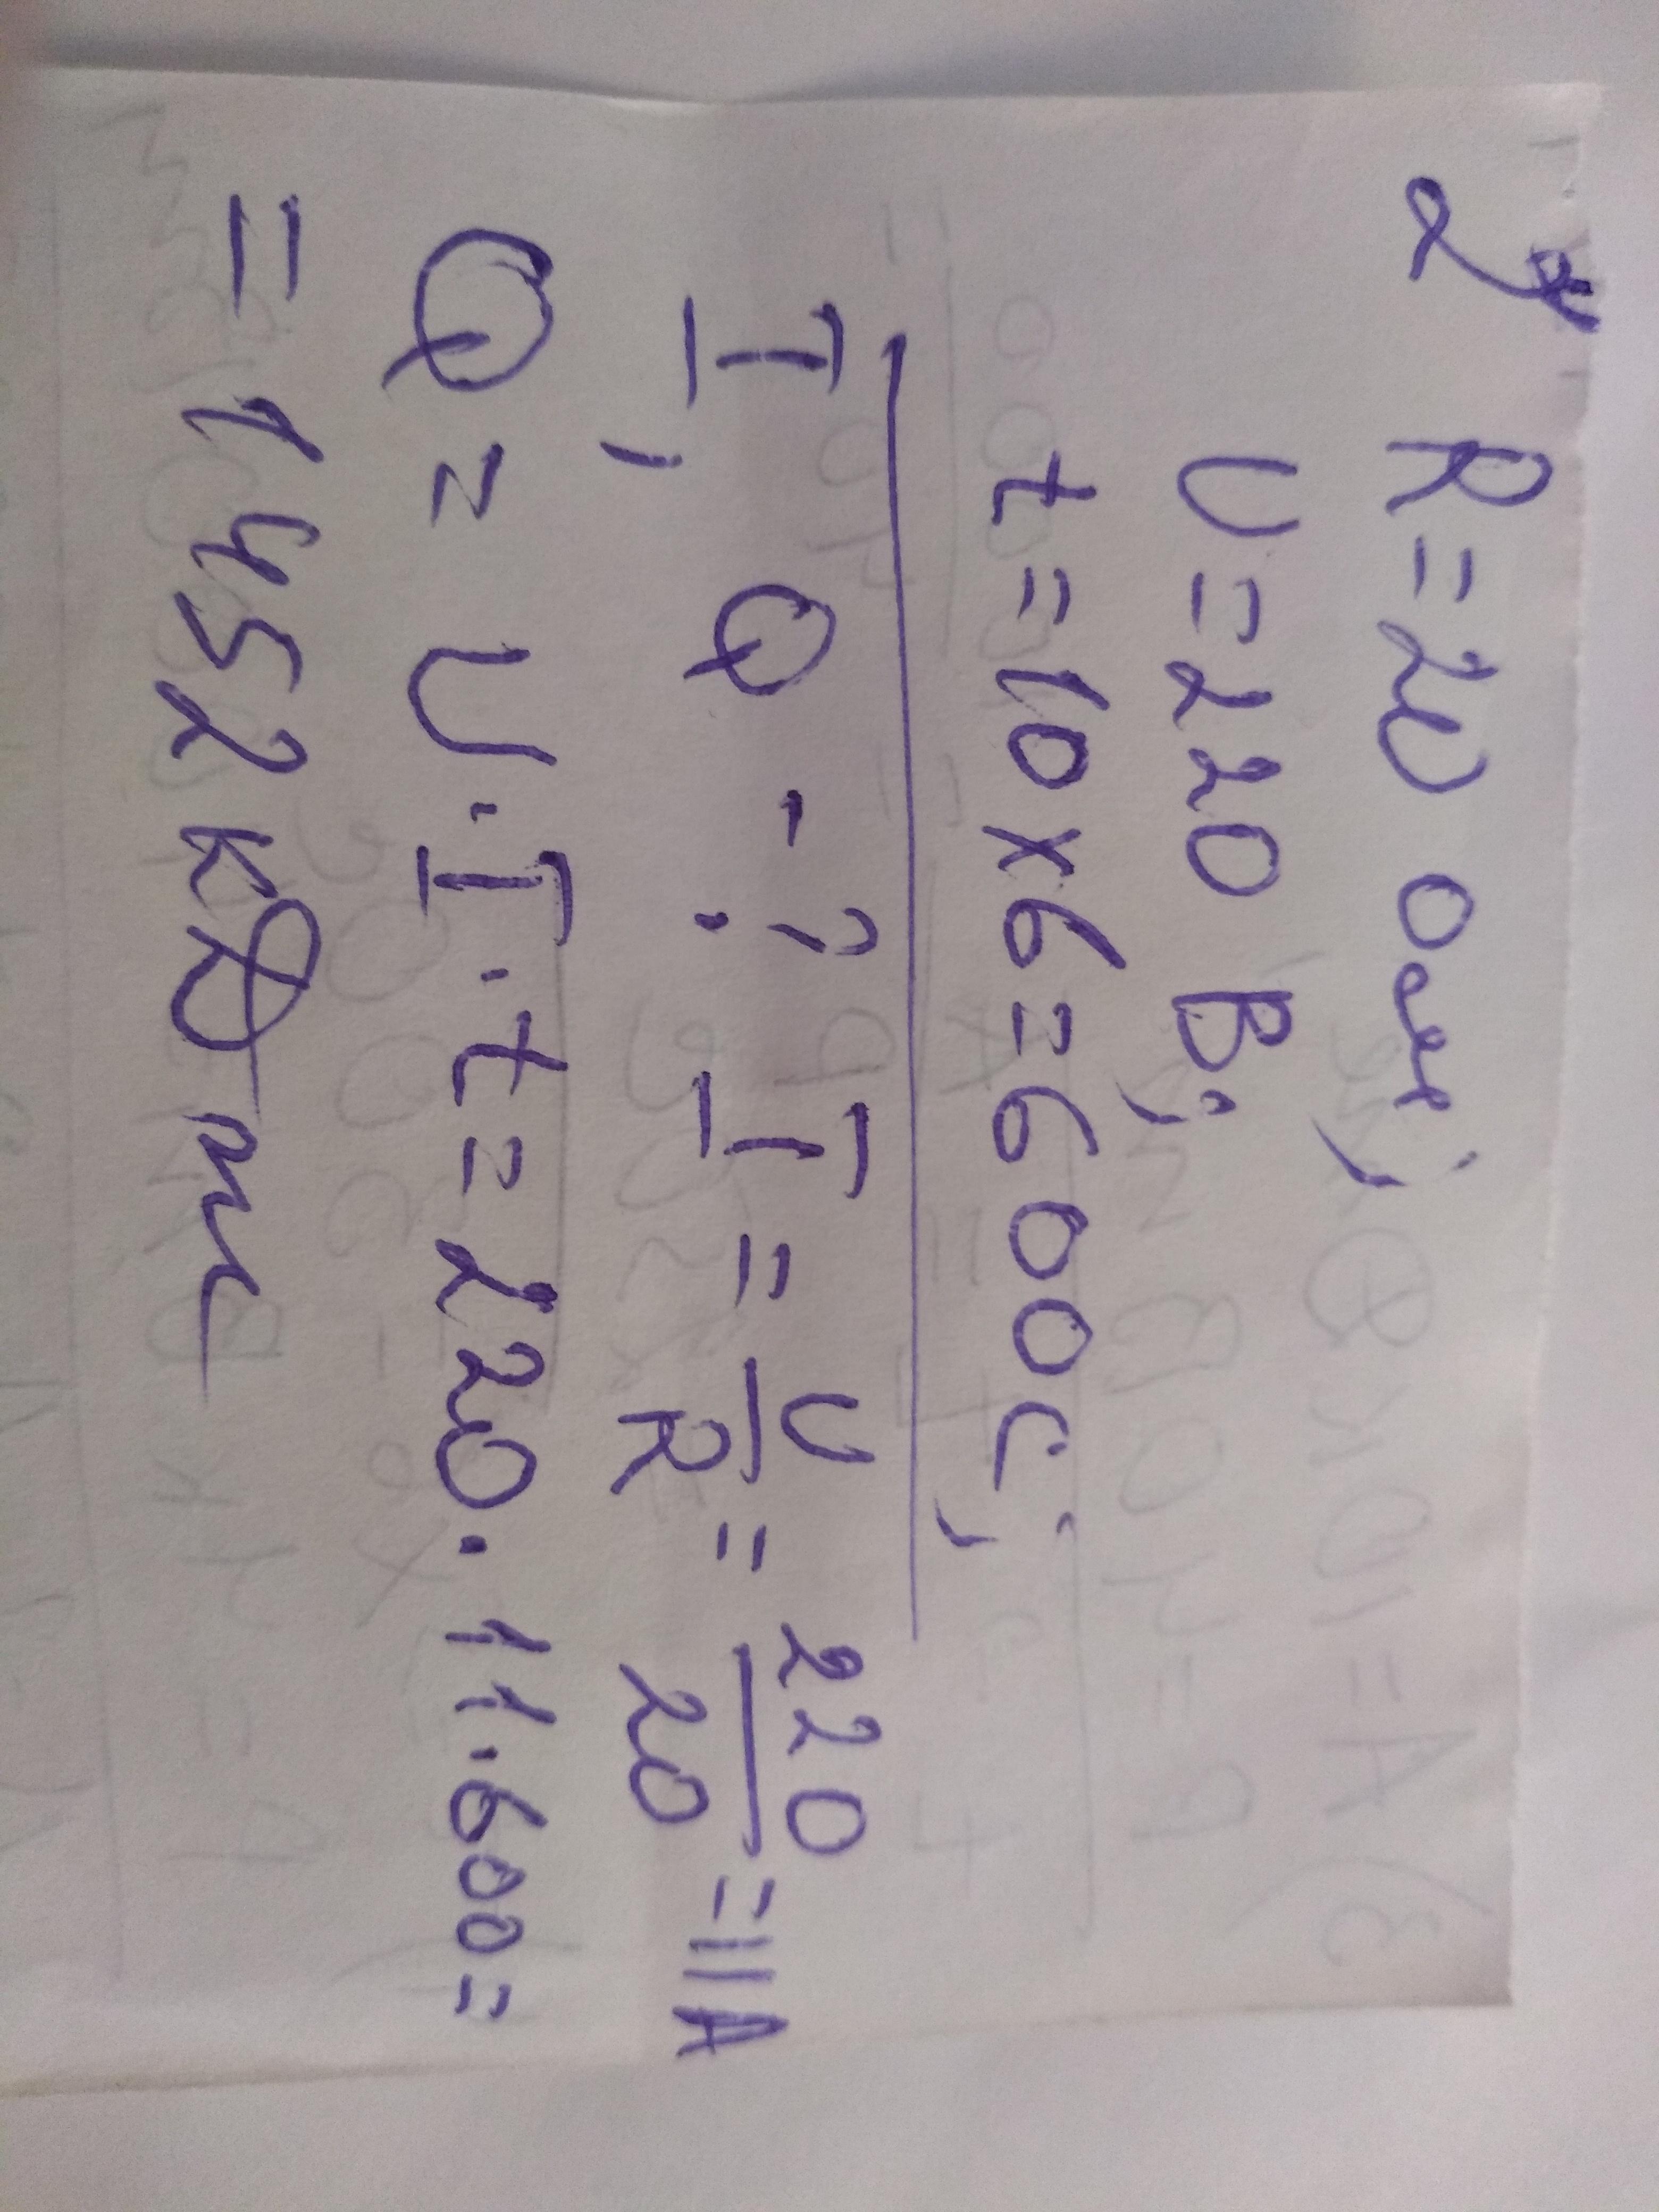 2
R=20 Ом;
U=220 В;
t=10x6=600с;
I, Q -? I = U/R = 220/20 =11А
Q = U·I·t=220·11·600=
= 1452 кДж